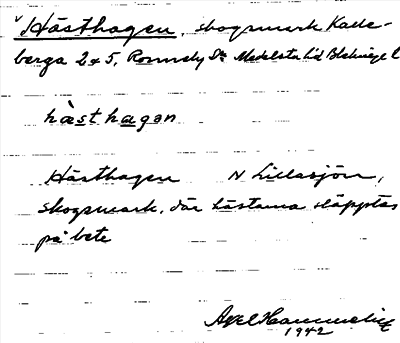 Hästhagen, skogsmark Kalle-
berga 2 & 5, Ronneby Sn Medelsta hd Blekinge l
hàsthagan
Hästhagen N Lillasjön,
skogsmark, där hästarna släpptes
på bete
Axel Hammelin
1942